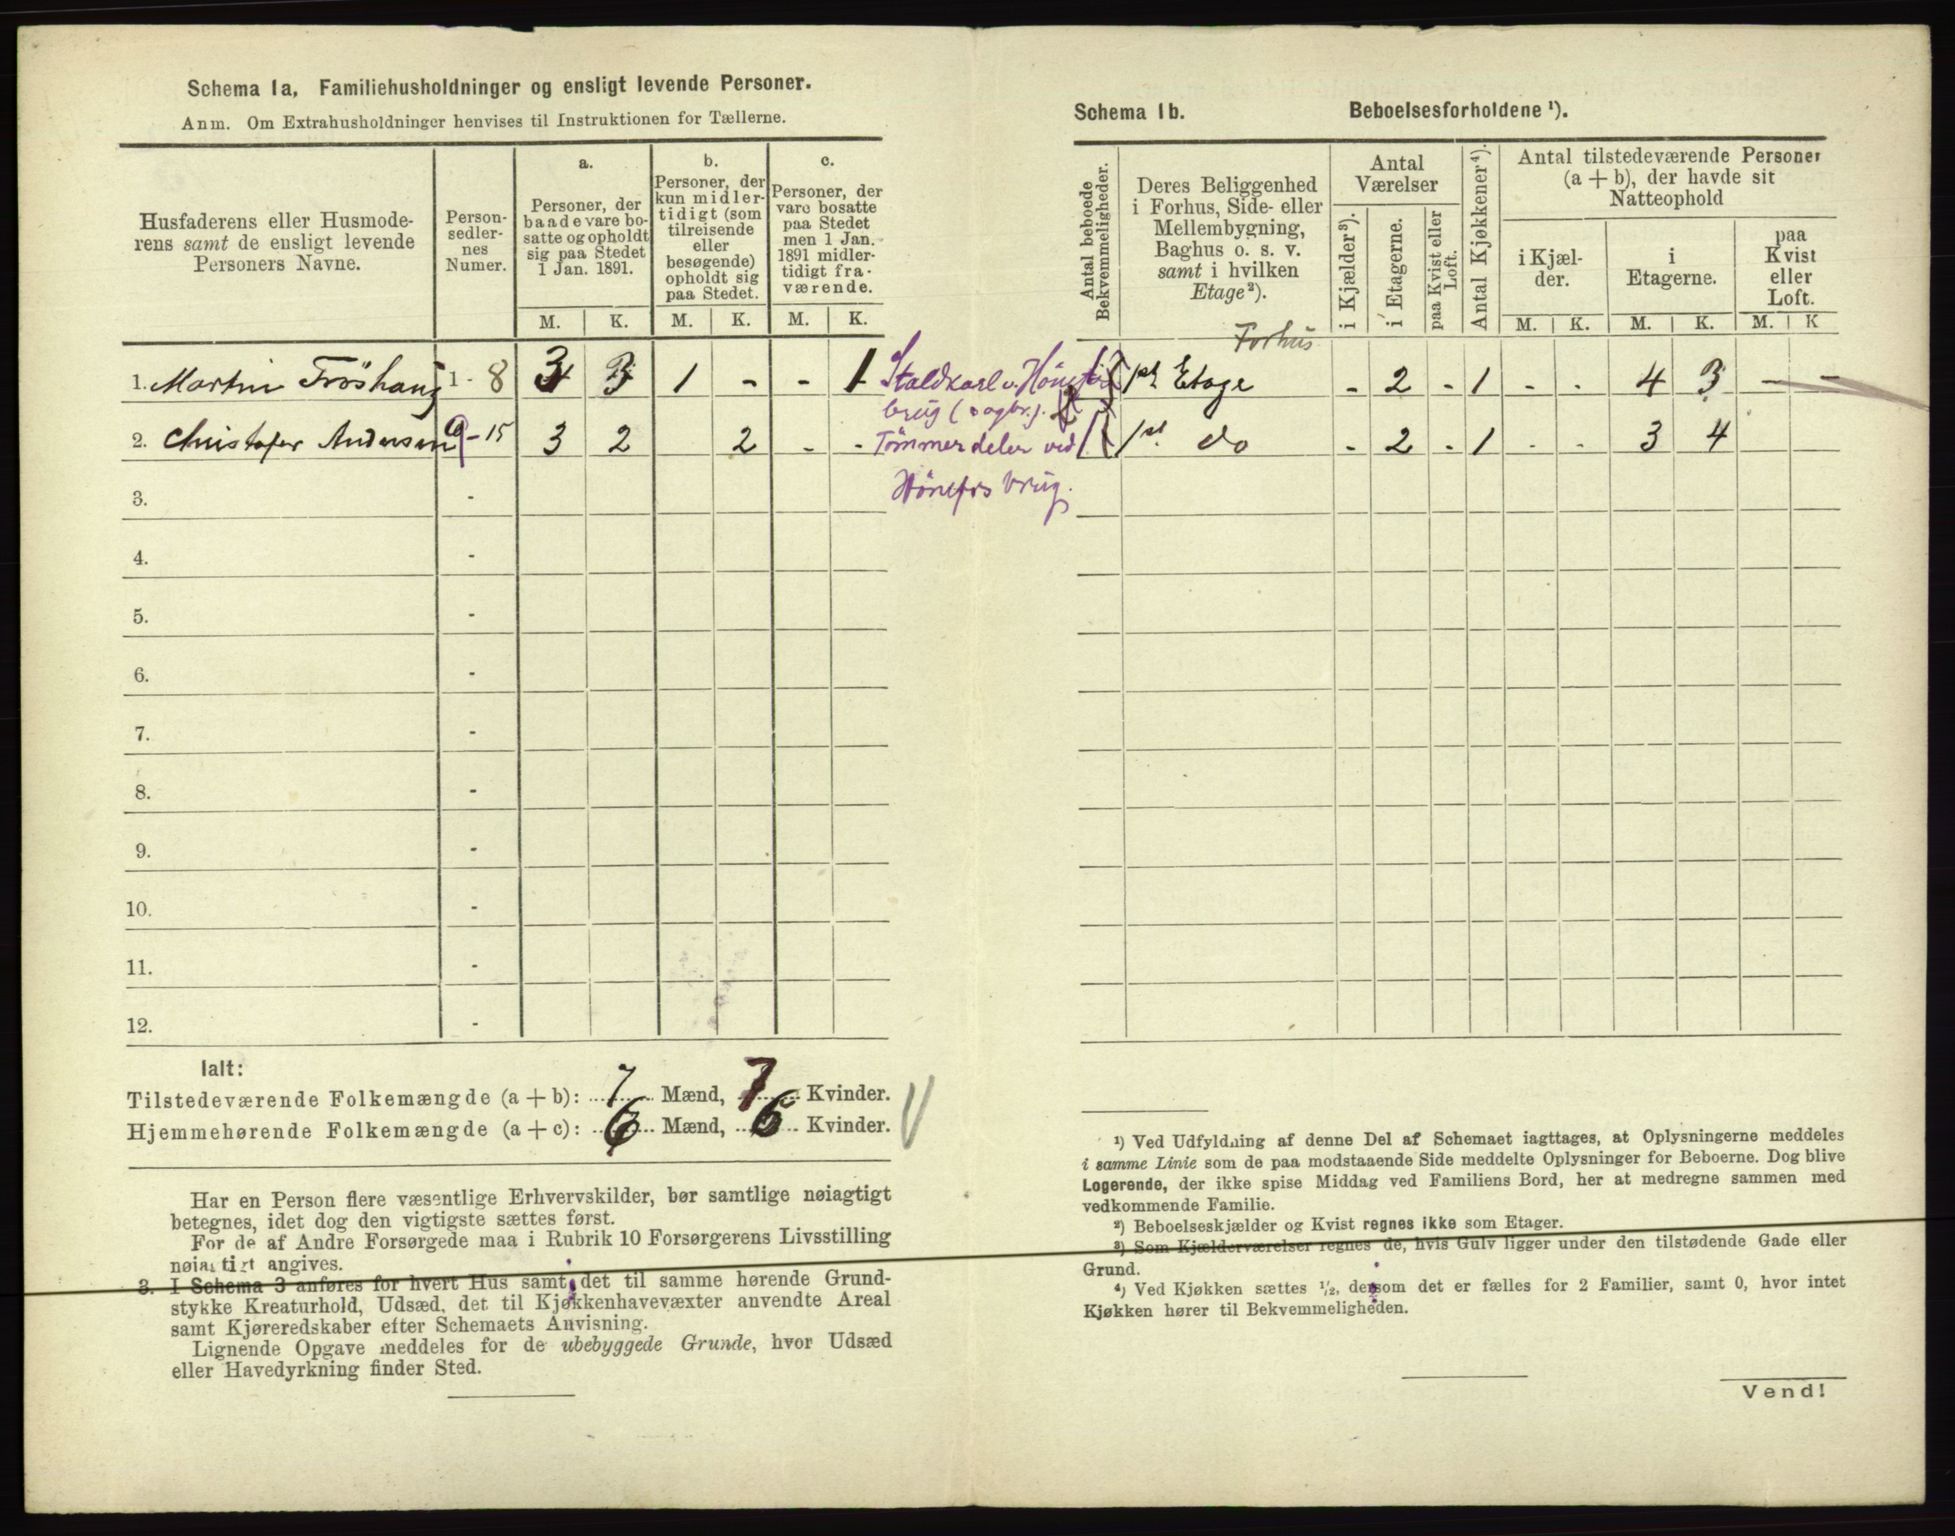 Schema 1a, Familiehusholdninger og ensligt levende Personer.
Anm. Om Extrahusholdninger henvises til Instruktionen for Tællerne.
Husfaderens eller Husmode-
rens samt de ensligt levende
Personers Navne.
Person-
sedler-
nes
Numer.
a.
Personer, der
baade vare bo-
satte og opholdt
sig paa Stedet
1 Jan. 1891.
b.
Personer, der
kun midler-
tidigt (som
tilreisende
eller
besøgende)
opholdt sig
paa Stedet.
c.
Personer, der
vare bosatte
paa Stedet
men 1 Jan.
1891 midler-
tidigt fra-
værende.
M. K. M. K. M. K.
1. Martin Fröshaug 1 - 8 3 3 1 - - 1
2. Christofer Andersen 9 - 15 3 2 2 - -
Staldkarl v. Hönefos
brug (sagbr.).
Tömmerdeler ved
Hönefos brug.
3. -
4. -
5. -
6. -
7. -
8. -
9. -
10. -
11. -
12. -
Ialt:
Tilstedeværende Folkemængde (a + b): 7 Mænd, 7 Kvinder.
Hjemmehørende Folkemængde (a + c): 6 Mænd, 6 Kvinder.
Har en Person flere væsentlige Erhvervskilder, bør samtlige nøiagtigt
betegnes, idet dog den vigtigste sættes først.
For de af Andre Forsørgede maa i Rubrik 10 Forsørgerens Livsstilling
nøiagtigt angives.
3. I Schema 3 anføres for hvert Hus samt det til samme hørende Grund-
stykke Kreaturhold, Udsæd, det til Kjøkkenhavevæxter anvendte Areal
samt Kjøreredskaber efter Schemaets Anvisning.
Lignende Opgave meddeles for de ubebyggede Grunde, hvor Udsæd
eller Havedyrkning finder Sted.
Schema 1b. Beboelsesforholdene ¹).
Antal beboede
Bekvemmeligheder.
Deres Beliggenhed
i Forhus, Side- eller
Mellembygning,
Baghus o. s. v.
samt i hvilken
Etage²).
Antal
Værelser
i Kjælder³).
i Etagerne.
paa Kvist eller
Loft.
Antal Kjøkkener⁴).
Antal tilstedeværende Personer
(a + b), der havde sit
Natteophold
i Kjæl-
der.
i
Etagerne.
paa
Kvist
eller
Loft.
M. K. M. K. M. K
Forhus
1ste Etage - 2 - 1 - - 4 3 - -
1 1ste do - 2 - 1 - - 3 4
¹) Ved Udfyldning af denne Del af Schemaet iagttages, at Oplysningerne meddeles
i samme Linie som de paa modstaaende Side meddelte Oplysninger for Beboerne. Dog blive
Logerende, der ikke spise Middag ved Familiens Bord, her at medregne sammen med
vedkommende Familie.
²) Beboelseskjælder og Kvist regnes ikke som Etager.
³) Som Kjælderværelser regnes de, hvis Gulv ligger under den tilstødende Gade eller
Grund.
⁴) Ved Kjøkken sættes ¹/₂, dersom det er fælles for 2 Familier, samt 0, hvor intet
Kjøkken hører til Bekvemmeligheden.
Vend!